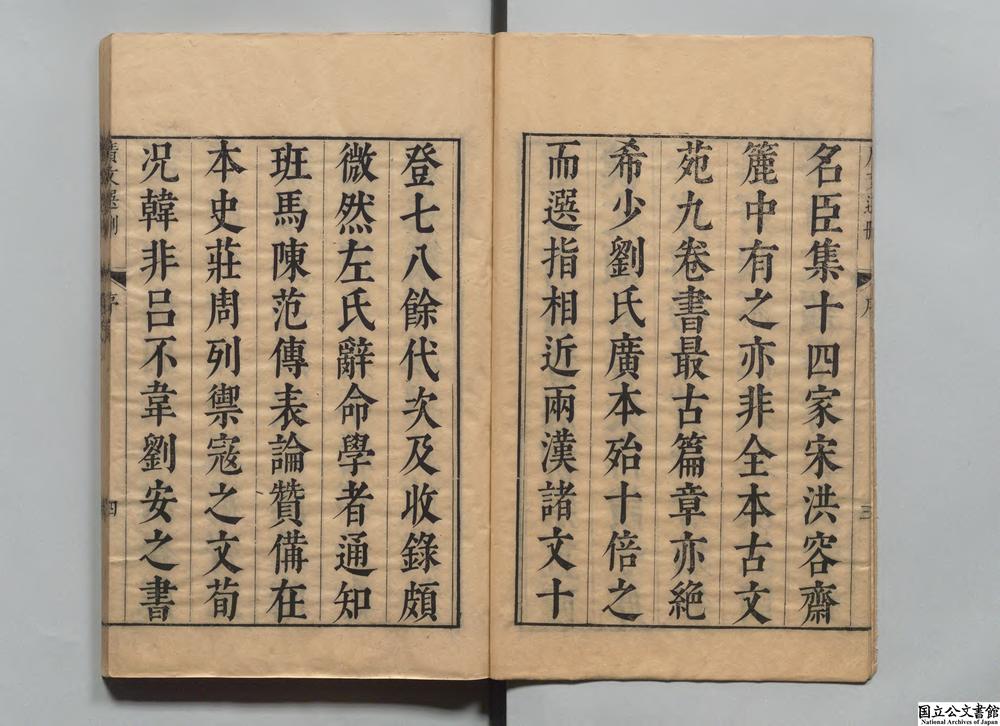 名臣集十四家宋洪容齋
簏中有之亦非全本古文
苑九卷書最古篇章亦絶
希少劉氏廣本殆十倍之
而選指相近兩漢諸文十
登七八餘代次及收錄頗
微然左氏辭命學者通知
班馬陳范傳表論贊備在
本史莊周列禦寇之文荀
況韓非吕不韋劉安之書
序
三
四
国立公文書館
National Archives of Japan